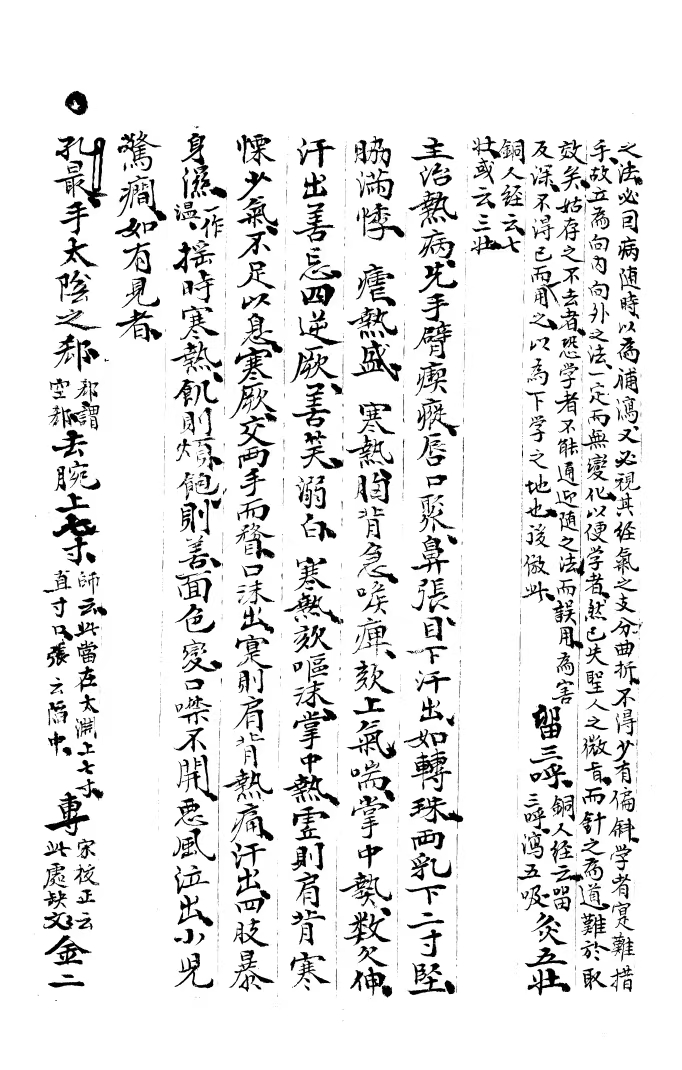 之法必因病随時以爲補瀉又必視其経氣之支分曲折不得少有偏斜学者寔難措
手故立爲向内向外之法一定而無變化以便学者然已失聖人之微旨而針之爲道難於取
效矣姑存之不去者恐学者不能通迎随之法而誤用爲害
及深不得已而用之以爲下学之地也後倣此
留三呼
銅人経云留
三呼瀉五吸
灸五壮
銅人経云七
壮或云三壮
主治熱病先手臂瘈瘲唇口聚鼻張目下汗出如轉珠两乳下二寸堅
脇滿悸瘧熱盛寒熱胸背急喉痺欬上氣喘掌中熱数欠伸
汗出善忘四逆厥善笑溺白寒熱欬嘔沫掌中熱虚則肩背寒
慄少氣不足以息寒厥交两手而瞀口沫出寔則肩背熱痛汗出四肢暴
身濕
一作
温
揺時寒熱飢則煩飽則善面色變口噤不開悪風泣出小児
驚癇如有見者
孔最手太陰之郄
郄謂
空郄
去腕上七寸
師云此當在太淵上七寸
直寸口張云陷中
専
宋校正云
此處缺文
金二